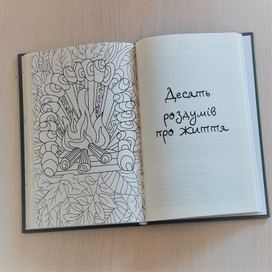 Десять
роздумів
про життя